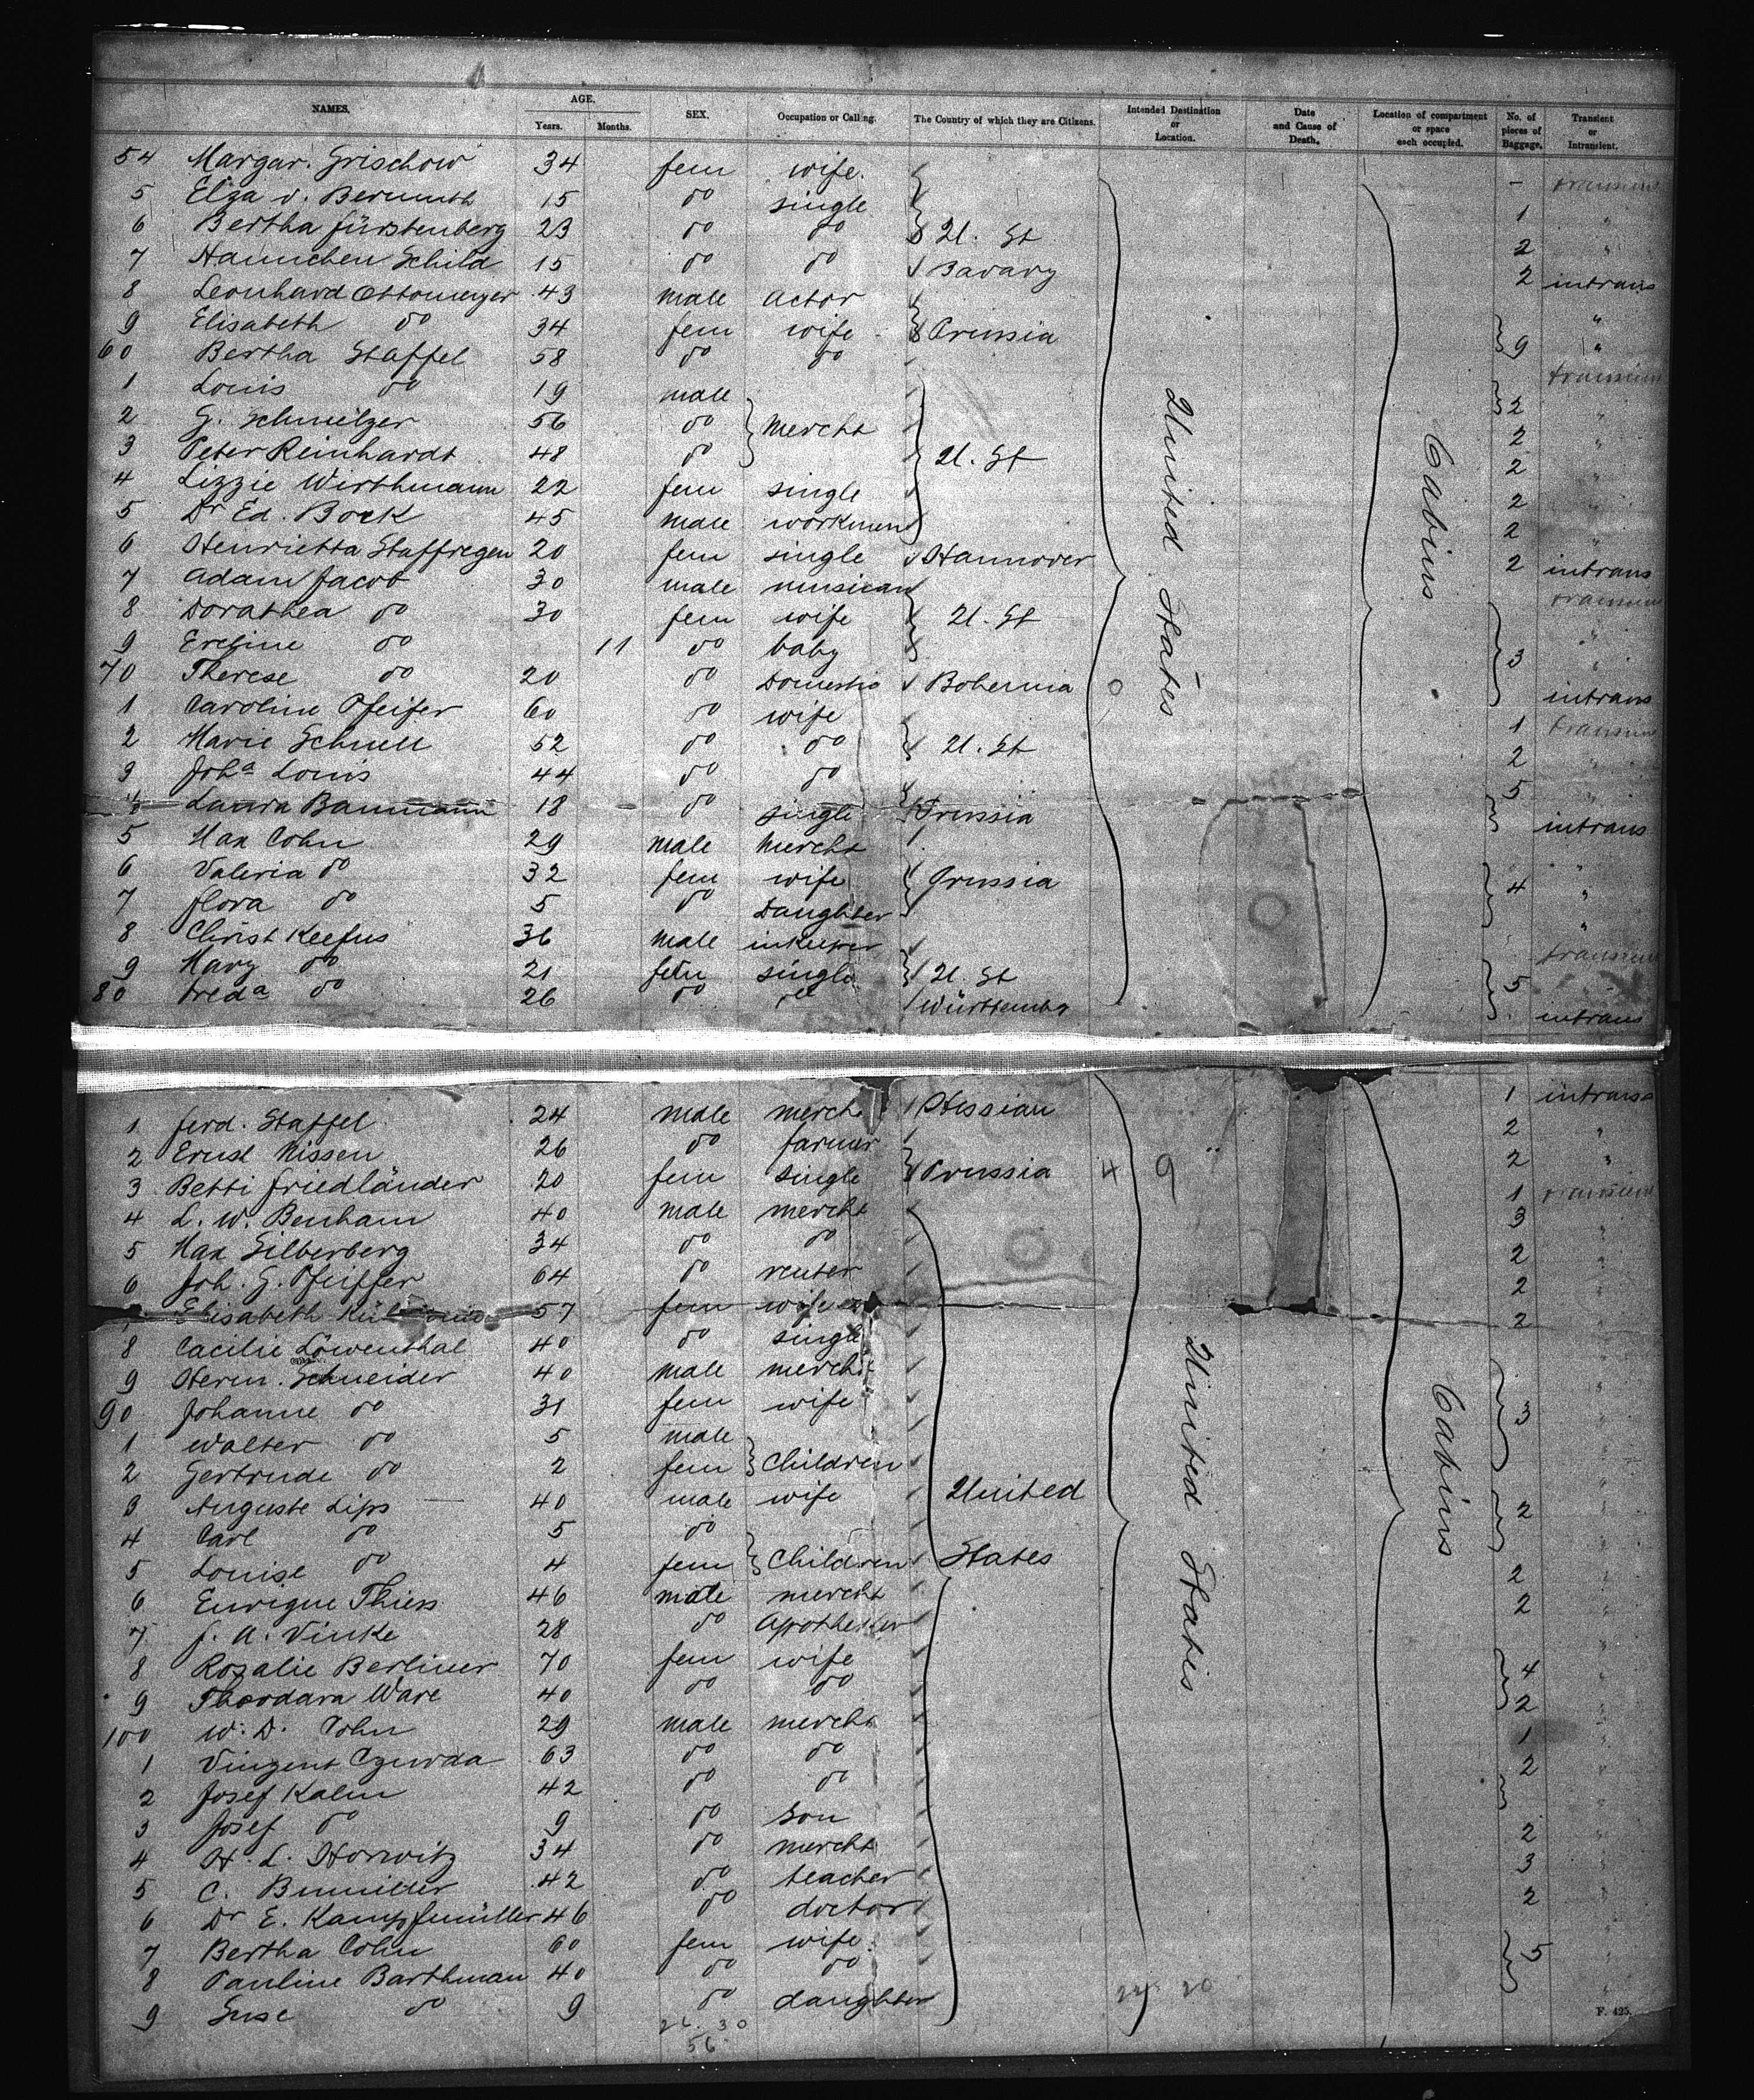 NAMES. AGE. Years. Months. SEX. Occupation or Calling. The Country of which they are Citizens. Intended Destination or Location. Date and Cause of Death. Location of compartment or space each occupied. No. of pieces of Baggage. Transient or Intransient.
54 Margar. Grischow 34 fem wife. -
5 Elza v. Bermuth 15 do single 1 "
6 Bertha Fürstenberg 23 do do U. St 2 "
7 Hannchen Schild 15 do do Bavary 2 intrans
8 Leonhard Ottomeyer 43 male actor "
9 Elisabeth do 34 fem wife Prussia 9 "
60 Bertha Staffel 58 do do
1 Louis do 19 male 2 "
2 G. Schmelzer 56 do Mercht 2 "
3 Peter Reinhardt 48 do U. St 2 "
4 Lizzie Wirthmann 22 fem single 2 "
5 Dr Ed. Bock 45 male workmen 2 "
6 Henrietta Staffregen 20 fem single Hannover 2 intrans
7 Adam Jacob 30 male musican
8 Dorathea do 30 fem wife U. St "
9 do 11 do baby 3 "
70 Therese do 20 do Domestic Bohemia intrans
1 Caroline Pfeifer 60 do wife 1
2 Marie Schnell 52 do do U. St 2 "
3 Joha Louis 44 do do 5 "
4 Laura Baumann 18 do single Prussia intrans
5 Max Cohn 29 male Mercht "
6 Valeria do 32 fem wife Prussia 4 "
7 Flora do 5 do Daughter "
8 Christ Keefus 36 male inkeeper
9 Mary do 21 fem single U. St 5 "
80 Freda do 26 do do Württembg intrans
United States
Cabins
1 Ferd. Staffel 24 male mercht Hessian 1 intrans
2 Ernst Nissen 26 do farmer 2 "
3 Betti Friedländer 20 fem single Prussia 2 "
4 L. W. Benham 40 male mercht 1
5 Max Silberberg 34 do do 3 "
6 Joh. G. Pfeiffer 64 do renter 2 "
7 Elisabeth 57 fem wife 2 "
8 Cacilie Löwenthal 40 do single 2 "
9 Herm. Schneider 40 male mercht "
90 Johanne do 31 fem wife 3 "
1 Walter do 5 male "
2 Gertrude do 2 fem Children "
3 Auguste Lips 40 male wife United 2 "
4 Carl do 5 do "
5 Louise do 4 fem Children States 2 "
6 Enrique Thiess 46 male mercht 2 "
7 J. A. Vinke 28 do Apotheker "
8 Rozalie Berliner 70 fem wife 4 "
9 Theodara Ware 40 do do 2 "
100 W. D. Cohn 29 male mercht 1 "
1 Vinzent Czurda 63 do do 2 "
2 Josef Kalm 42 do do "
3 Josef do 9 do son 2 "
4 H. L. Horwitz 34 do mercht 3 "
5 C. 42 do teacher 2 "
6 Dr E. Kampfmüller 46 do doctor "
7 Bertha Cohn 60 fem wife 5 "
8 Pauline Barthman 40 do do "
9 Suse do 9 do daughter
United States
Cabins
26. 30
56
F. 425.